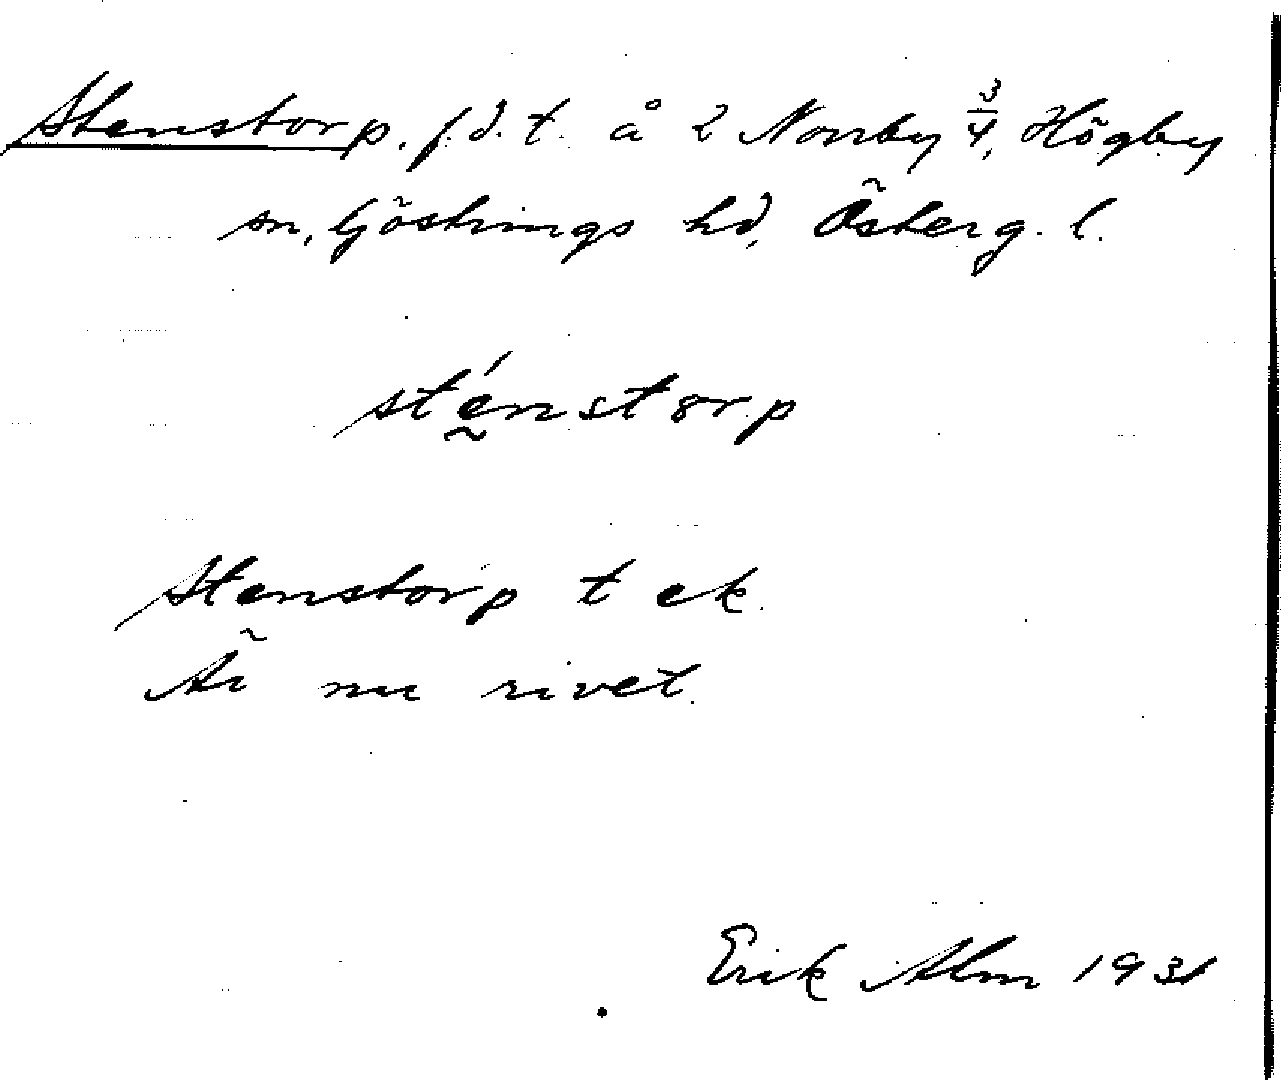 Stenstorp, f.d.t. å 2 Norrby 3/4, Högby
sn, Göstrings hd, Österg. l.
sténstorp
Stenstorp t ek.
Är nu rivet.
Erik Alm 1931